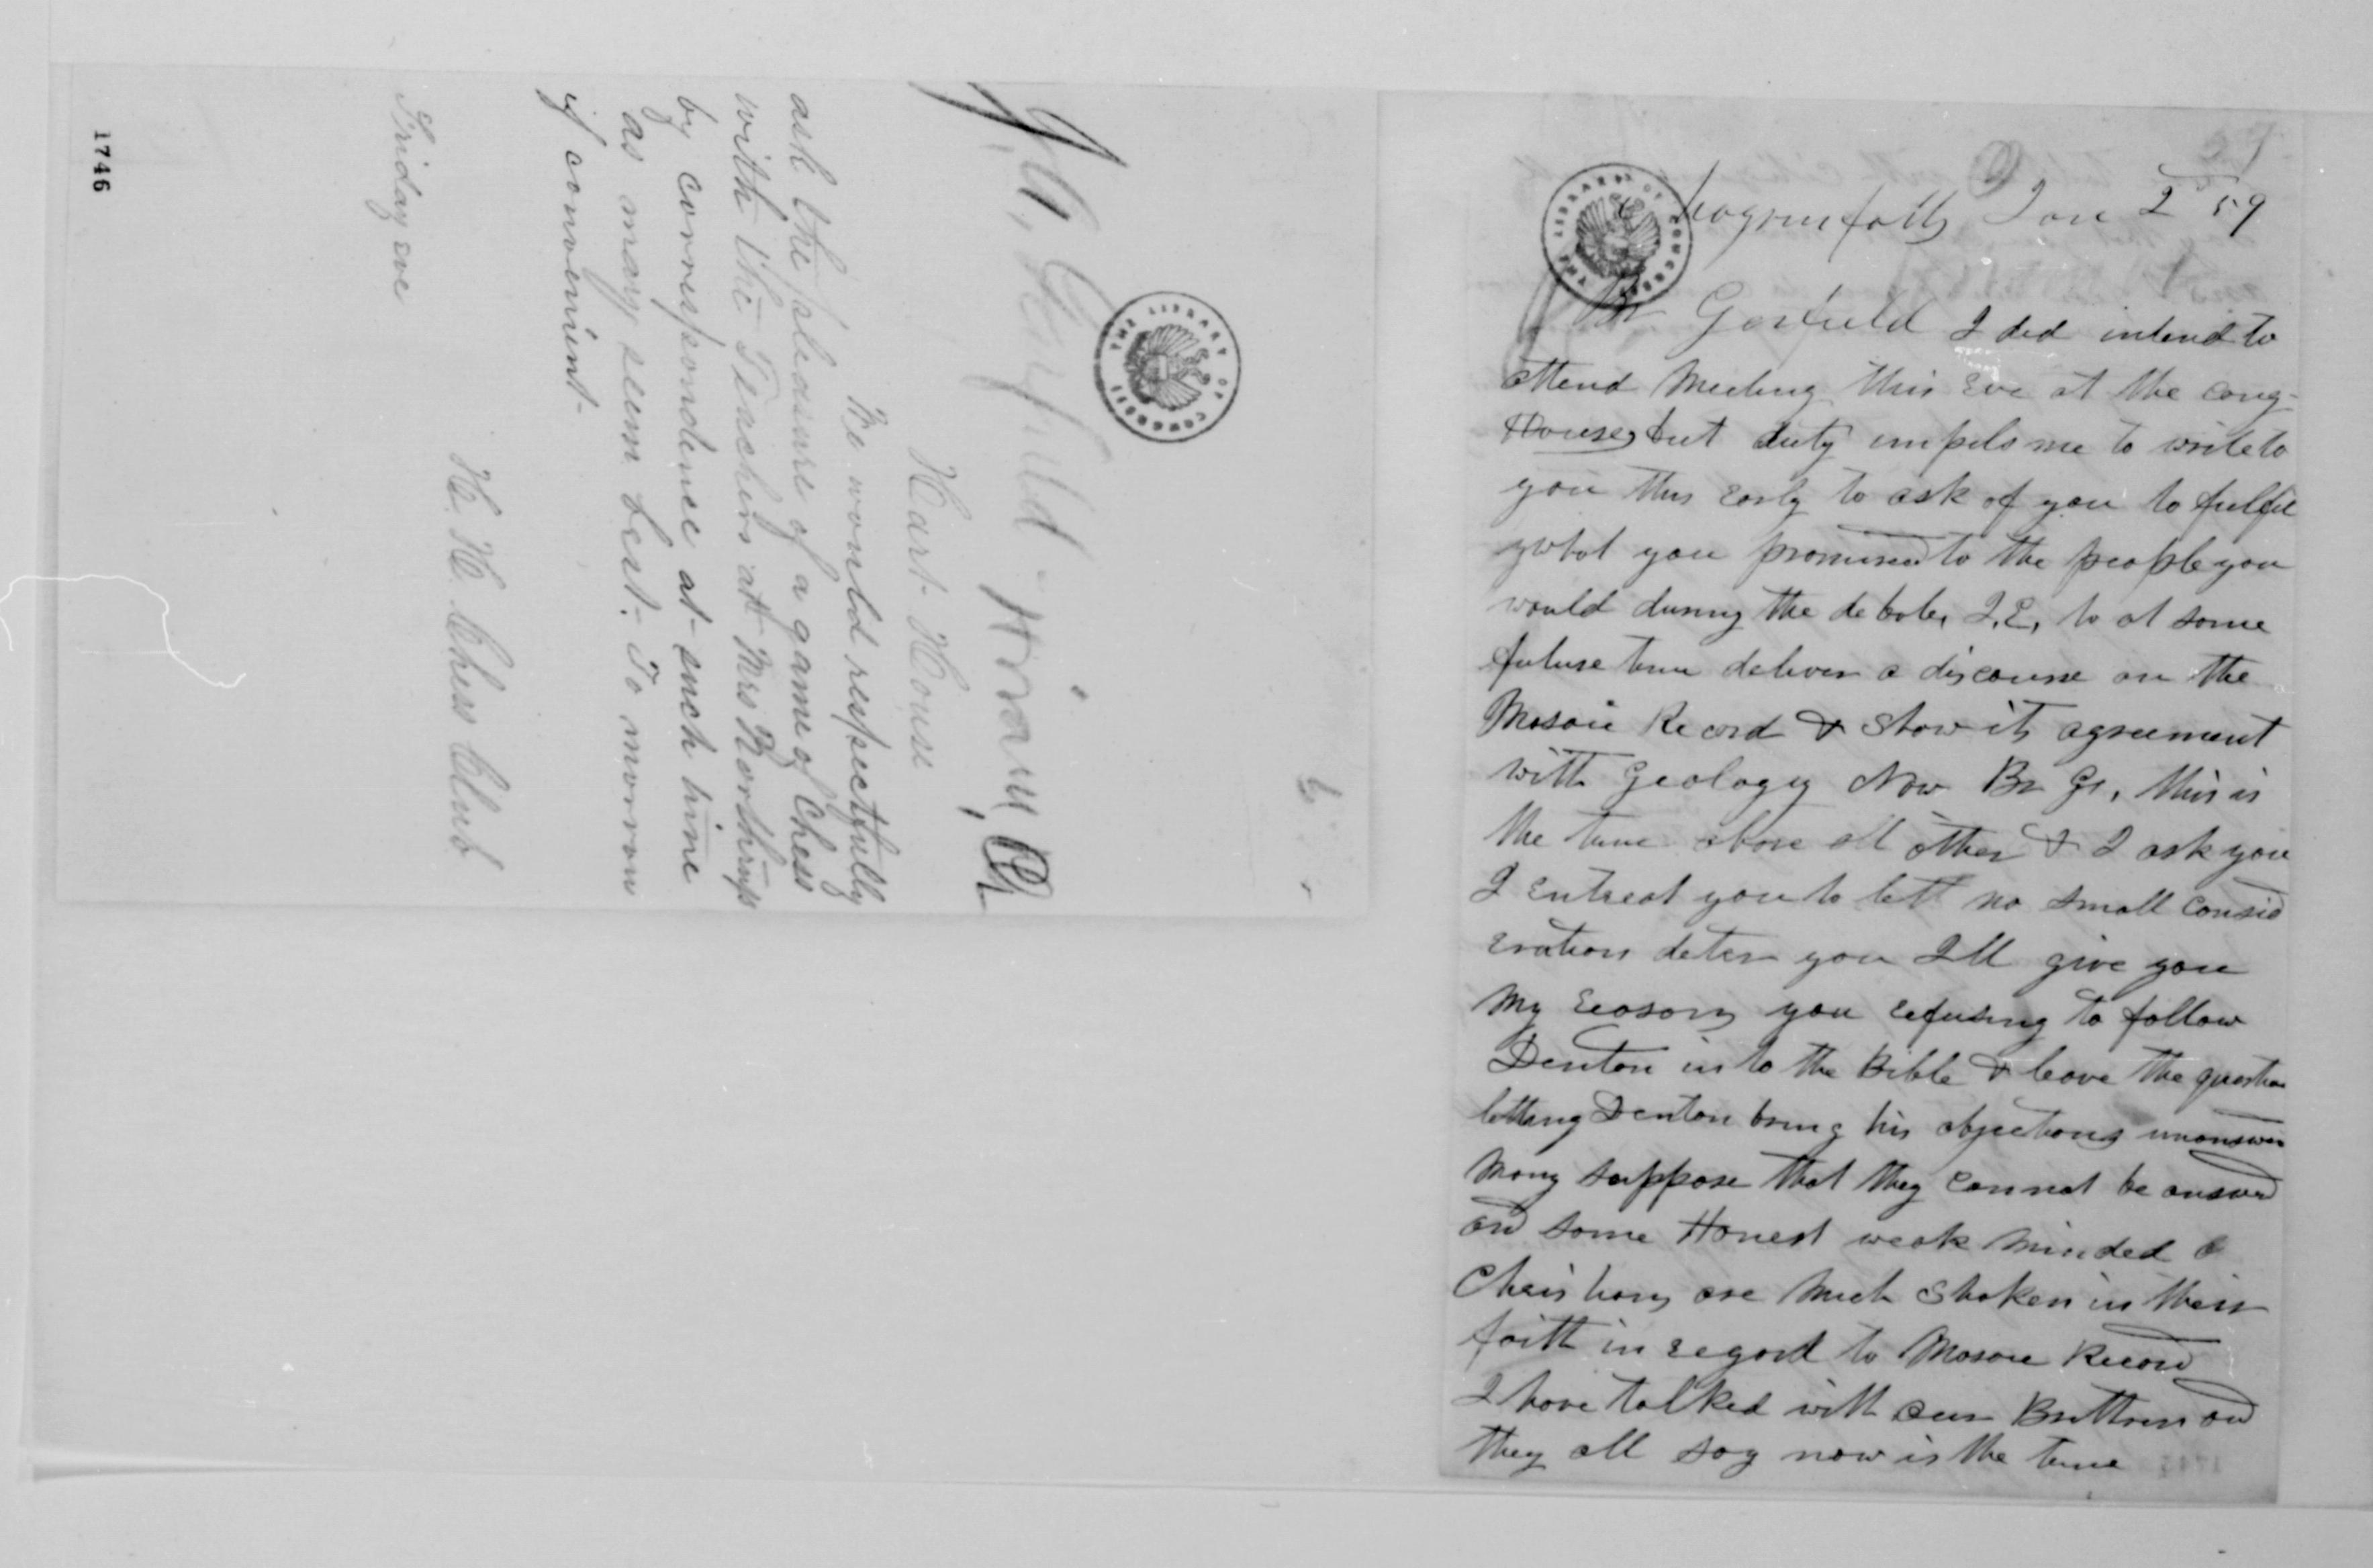 J. A. Garfield
Hiram, O.
Hart House
We would respectfully
ask the pleasure of a game of Chess
with the Teachers at Mrs Northrups
by correspondence at such time
as may seem best. To morrow
if convenient.
H. H. Chess Club
Friday eve
1746
THE LIBRARY OF CONGRESS
Chagrin falls Jan 2 59
THE LIBRARY OF CONGRESS
Br Garfield I did intend to
attend Meeting this Eve at the Cong-
House, but duty impels me to write to
you thus early to ask of you to fulfil
what you promised to the people you
would during the debate, I.E. to at some
future time deliver a discourse on the
Mosaic Record & Show its agreement
with Geology Now Br G, this is
the time above all other & I ask you
I Entreat you to lett no small Consid
eration deter you Ill give you
My reasons you refusing to follow
Denton in to the Bible & leave the question
letting Denton bring his objections unanswer
Many suppose that they cannot be answerd
and some Honest weak minded
Christians are Much Shaken in their
faith in regard to Mosaic Record
I have talked with our Brethren and
they all say now is the time